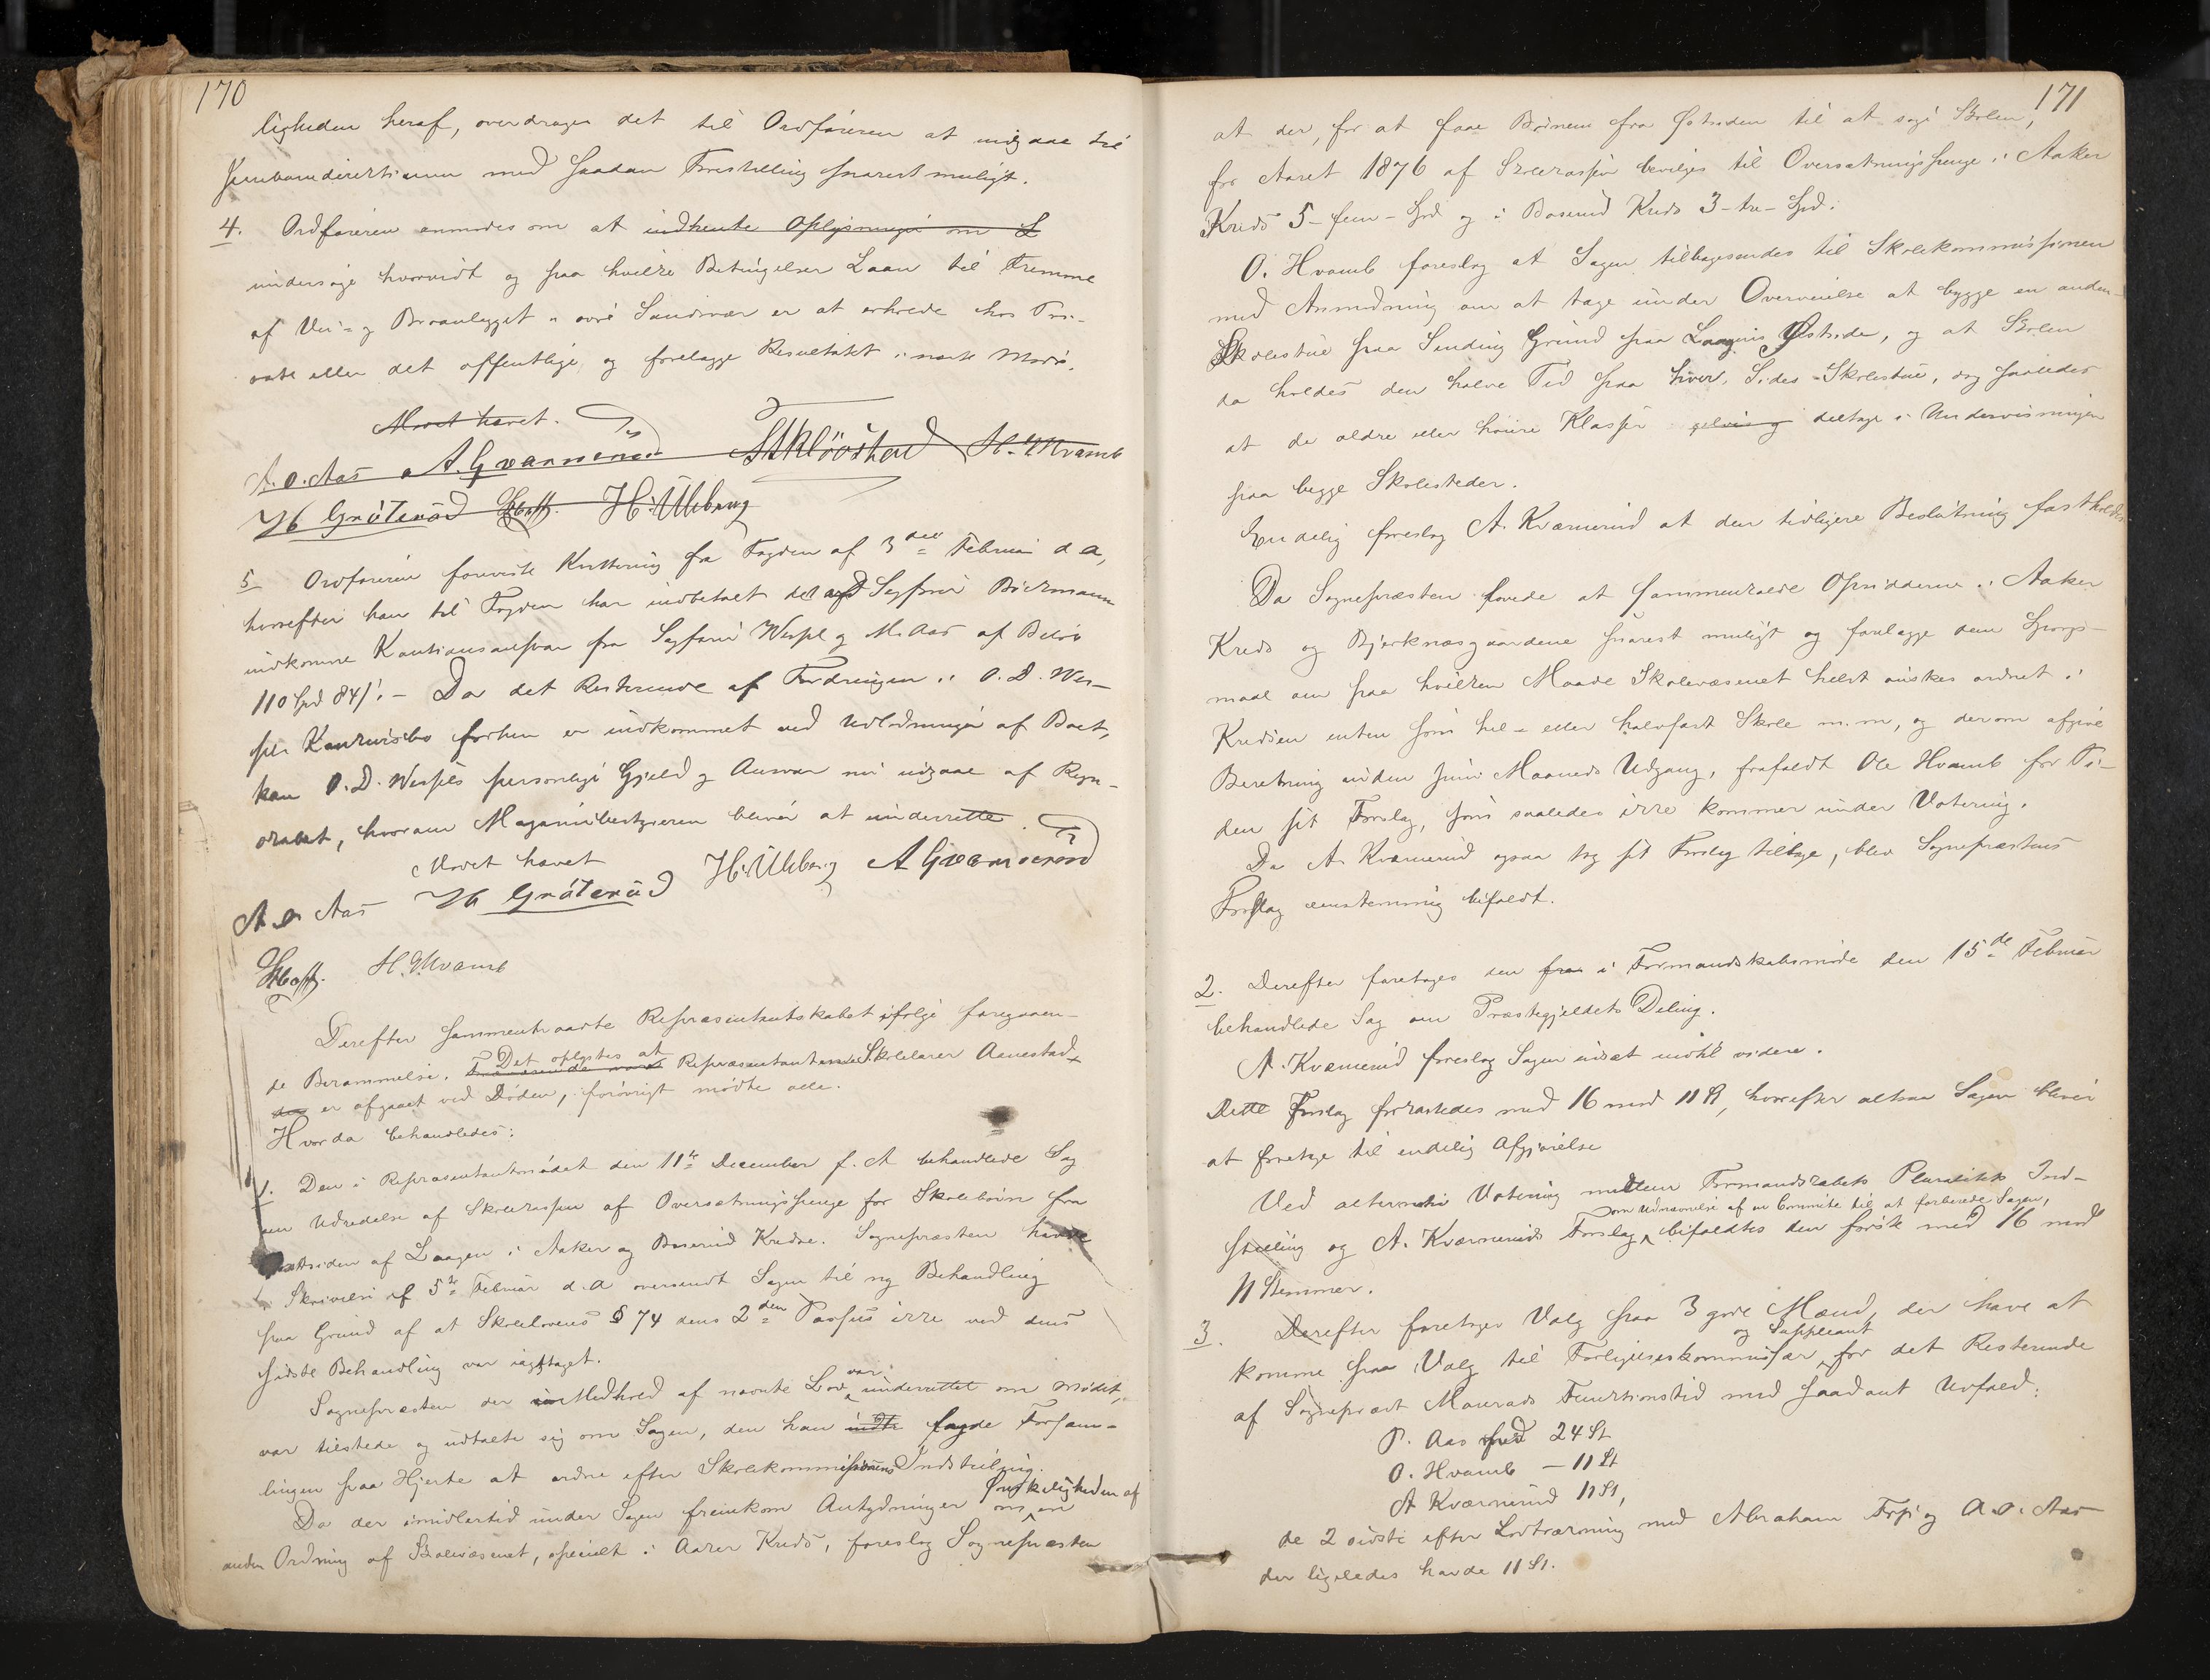 170
ligheden heraf, overdrages det til Ordføreren at indgaae til
Jernbanedirektionen med saadan Forestilling snarest muligt.
4. Ordføreren anmodes om at indhente Oplysninger om L
undersøge hvorvidt og paa hvilke Betingelser Laan til Fremme
af Vei- og Broanlægget over Sandsvær er at erholde hos Pri-
vate eller det offentlige, og forelægge Resultatet i næste Møde.
Mødet hævet.
A. O. Aas A. Gvarnerud H. Hvamb
H Gråterud Hoff. H. Ulleberg
5 Ordføreren foreviste Kvittering fra Fogden af 3die Februar d a,
hvorefter han til Fogden har indbetalt det af Sagfører Bickmann
indkomne Kautionsansvar fra Sagfører Wespl og M. Aas af Beløb
110 Spd 84 s. – Da det Resterende af Fordringen i O. D. Wes-
pls Konkursbo forhen er indkommet ved Udlodningen af Boet,
kan O. D. Wespls personlige Gjeld og Ansvar nu udgaae af Regn-
skabet, hvorom Magasinbestyreren bliver at underrette.
Mødet hævet H. Ulleberg A Gvarnerud
A O Aas H Gråterud
Hoff. H. Hvamb
Derefter sammentraadte Repræsentantskabet ifølge foregaaen-
de Berammelse. Det oplystes at Repræsentanten Skolelærer Aenestad
er afgaaet ved Døden, forøvrigt mødte alle.
Hvorda behandledes:
1. Den i Repræsentantmødet den 11te December f. A behandlede Sag
om Udredelse af Skolekassen af Oversætningspenge for Skolebørn fra
Østsiden af Laagen i Aaker og Baserud Kredse. Sognepræsten havde
i Skrivelse af 5te Februar d. a oversendt Sagen til ny Behandling
paa Grund af at Skolelovens § 74 dens 2den Passus ikke ved dens
sidste Behandling var iagttaget.
Sognepræsten der i Medhold af nævnte Lov var underrettet om Mødet,
var tilstede og udtalte sig om Sagen, den han lagde Forsam-
lingen paa Hjerte at ordne efter Skolekommissionens Indstilling.
Da der imidlertid under Sagen fremkom Antydninger om Ønskeligheden af en
anden Ordning af Skolevæsenet, specielt i Aaker Kreds, foreslog Sognepræsten
171
at der, for at faae Børnene fra Østsiden til at søge Skolen,
for Aaret 1876 af Skolekassen bevilges til Oversætningspenge i Aaker
Kreds 5 – fem – Spd og i Baserud Kreds 3 – tre – Spd.
O. Hvamb foreslog at Sagen tilbagesendes til Skolekommissionen
med Anmodning om at tage under Overveielse at bygge en anden
Skolestue paa Sending Grund paa Laagens Østside, og at Skolen
da holdes den halve Tid paa hver Sides Skolestue, dog saaledes
at de ældre eller høiere Klasser deltage i Undervisningen
paa begge Skolesteder.
Endelig foreslog A. Kværnerud at den tidligere Beslutning fastholdes.
Da Sognepræsten lovede at sammenkalde Opsidderne i Aaker
Kreds og Bjerknæsgaardene snarest muligt og forelægge dem Spørgs-
maal om paa hvilken Maade Skolevæsenet helst ønskes ordnet i
Kredsen enten som hel- eller halvfast Skole m. m, og derom afgive
Beretning inden Juni Maaneds Udgang, frafaldt Ole Hvamb for Ti-
den sit Forslag, som saaledes ikke kommer under Votering.
Da A. Kværnerud ogsaa tog sit Forslag tilbage, blev Sognepræstens
Forslag eenstemmig bifaldt.
2. Derefter foretoges den fra i Formandskabsmøde den 15de Februar
behandlede Sag om Præstegjeldets Deling.
A. Kværnerud foreslog Sagen udsat indtil videre.
Dette Forslag forkastedes med 16 mod 11 St, hvorefter altsaa Sagen bliver
at foretage til endelig Afgjørelse
Ved alternativ Votering mellem Formandskabets Pluralitets Ind-
stilling og A. Kværneruds Forslag om Udnævnelse af en Committe til at forberede Sagen, bifaldtes den første med 16 mod
11 Stemmer.
3. Derefter foretoges Valg paa 3 gode Mænd, der have at
komme paa Valg til Forligelseskommissær og Suppleant for det Resterende
af Sognepræst Monrads Functionstid med saadant Udfald:
P. Aas med 24 St
O. Hvamb – 11 St
A Kværnerud 11 St,
de 2 sidste efter Lodtrækning med Abraham Foss og A. O. Aas
der ligeledes havde 11 St.